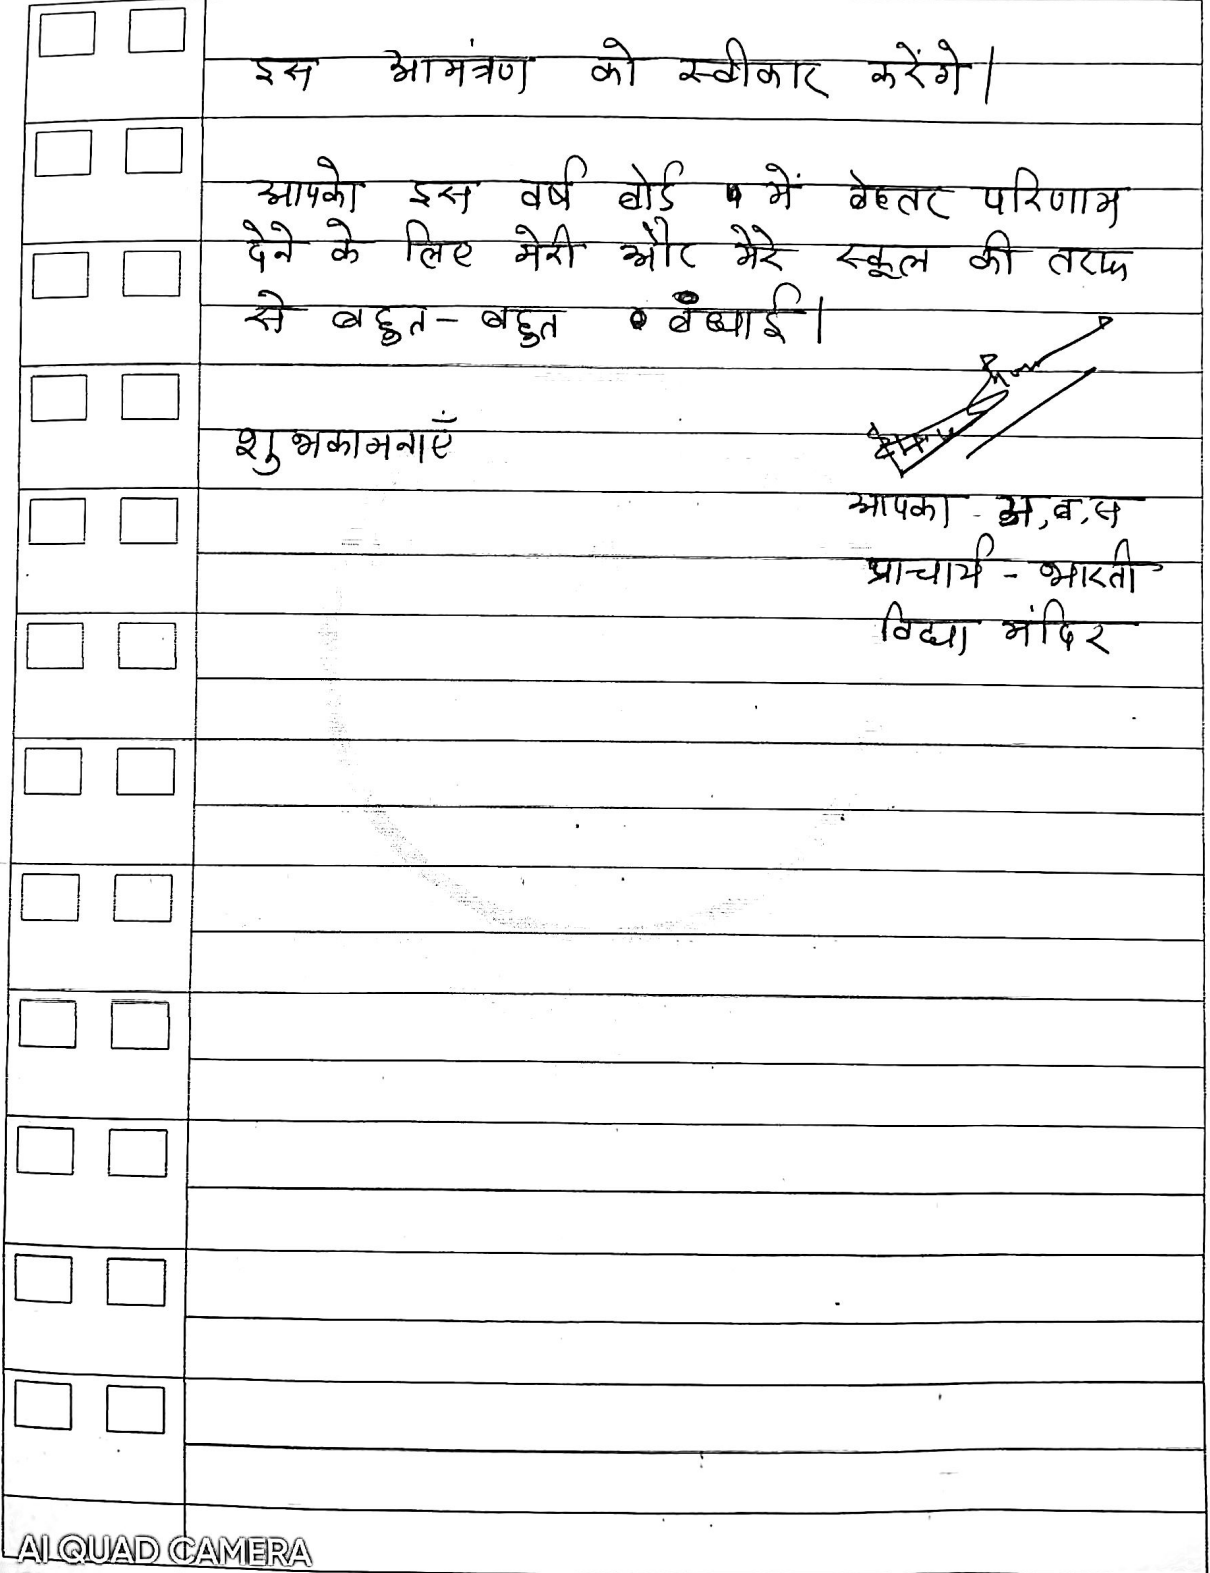 इस आमंत्रण को स्वीकार करेंगे।
आपको इस वर्ष बोर्ड में बेहतर परिणाम
देने के लिए मेरी और मेरे स्कूल की तरफ
से बहुत-बहुत बँधाई।
शुभकामनाएँ
आपका - अ,ब,स
प्राचार्य - भारती
विद्या मंदिर
AI QUAD CAMERA